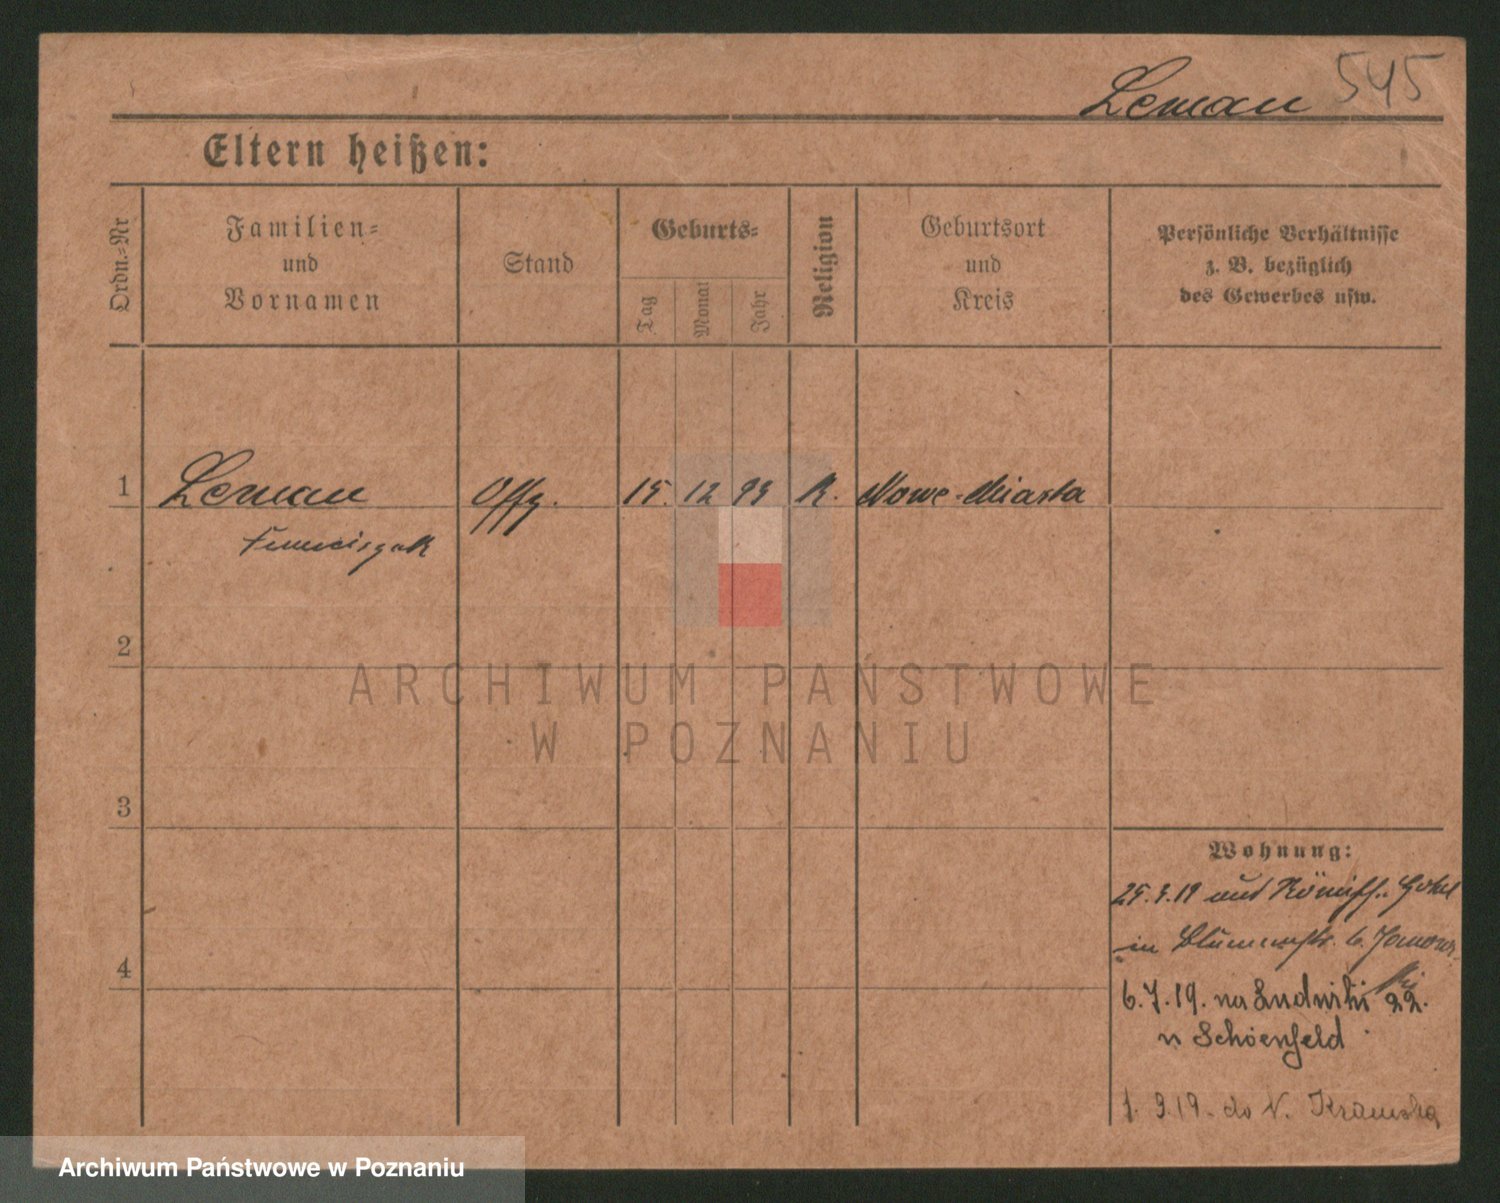 Leman 545
Eltern heißen:
Ordn.-Nr
Familien-
und
Vornamen
Stand
Geburts-
Tag
Monat
Jahr
Religion
Geburtsort
und
Kreis
Persönliche Verhältnisse
z. B. bezüglich
des Gewerbes usw.
1 Leman Offz. 15. 12 93 K. Nowe-Miasta
Franciszek
2
ARCHIWUM PAŃSTWOWE
W POZNANIU
3
Wohnung:
25.3.19 aus Hotel
in Blumenstr. 6.
4
6.7.19. na Ludwiki 22.
u Schoenfeld
1. 9.19. do N. Kramska
Archiwum Państwowe w Poznaniu